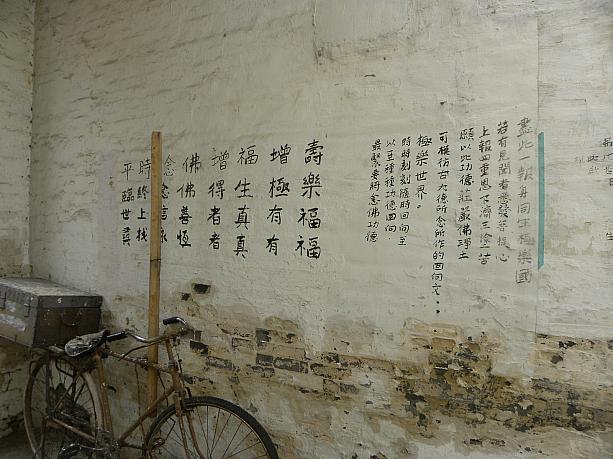 平時念佛增福增壽
臨終念佛得生極樂
世上信善者真有福
尋找永恆者真有福
最緊要時將念佛功德
以至種種功德回向.
時時刻刻隨時回向至
極樂世界.
可模仿古大德所念所作的回向文..
願以此功德莊嚴佛淨土
上報四重恩下濟三塗苦
若有見聞者悉發菩提心
盡此一報身同生極樂國